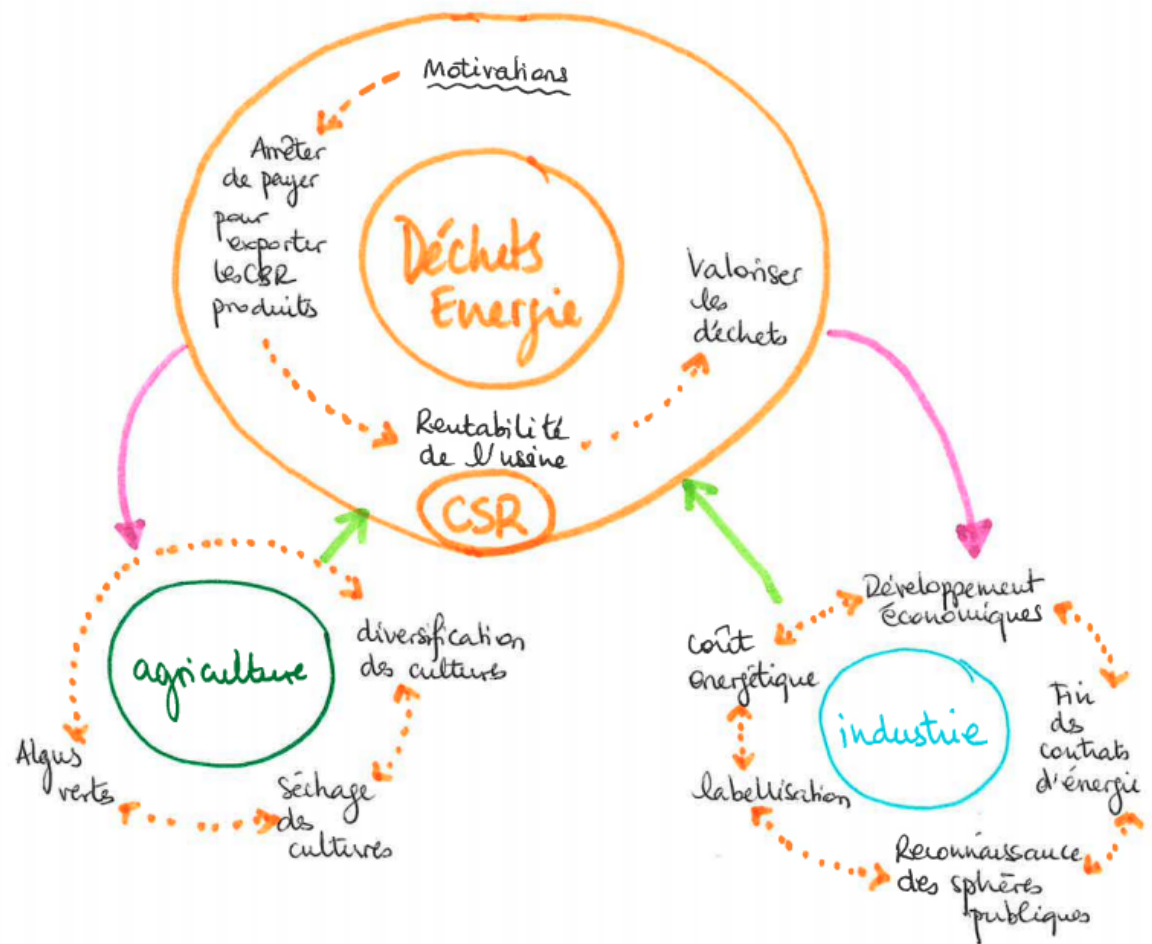 Motivations
Arrêter
de payer
pour
exporter
les CSR
produits
Déchets
Energie
Valoriser
les
déchets
Rentabilité
de l'usine
CSR
agriculture
diversification
des cultures
Algues
vertes
Séchage
des
cultures
Développement
économiques
coût
énergétique
industrie
Fin
des
contrats
d'énergie
labellisation
Reconnaissance
des sphères
publiques